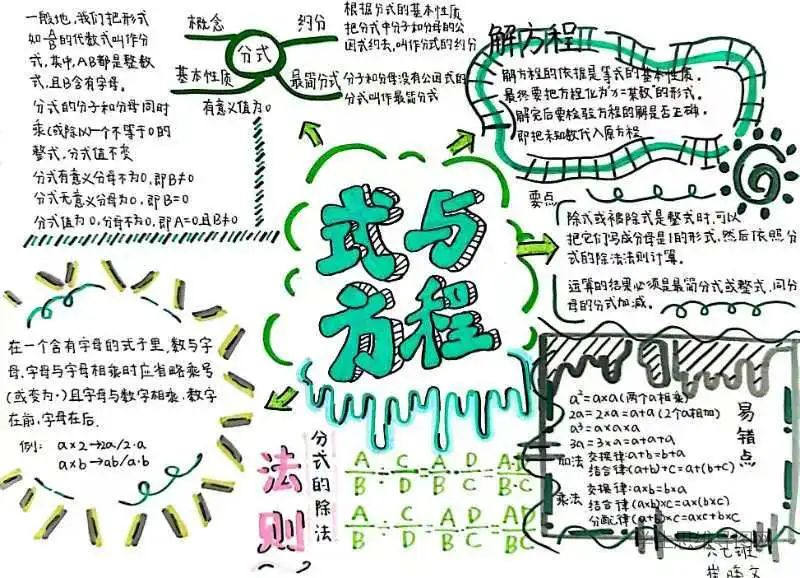 一般地,我们把形式
如A/B的代数式叫作分
式,其中,AB都是整数
式,且B含有字母。
分式的分子和分母同时
乘(或除以)一个不等于0的
整式,分式值不变
分式有意义分母不为0,即B≠0
分式无意义分母为0,即B=0
分式值为0,分母不为0,即A=0且B≠0
概念
约分
分式
基本性质
最简分式
有意义值为0
根据分式的基本性质
把分式中分子和分母的公
因式约去,叫作分式的约分
分子和分母没有公因式的
分式叫作最简分式
解方程
解方程的依据是等式的基本性质。
最终要把方程化为"x=某数"的形式。
解完后要检验方程的解是否正确。
即把未知数代入原方程
式与
方程
要点
除式或被除式是整式时,可以
把它们写成分母是1的形式,然后依照分
式的除法法则计算。
运算的结果必须是最简分式或整式,同分
母的分式加减。
在一个含有字母的式子里,数与字
母,字母与字母相乘时应省略乘号
(或变为·)且字母与数字相乘,数字
在前,字母在后.
例: a×2→2a/2·a
a×b→ab/a·b
法则
分式的除法
A/B÷C/D=A/B·D/C=A·D/B·C
A/B÷C/D=A/B·D/C=AD/BC
易错点
a²=a×a(两个a相乘)
2a=2×a=a+a(2个a相加)
a³=a×a×a
3a=3×a=a+a+a
加法 交换律:a+b=b+a
结合律(a+b)+c=a+(b+c)
乘法 交换律:a×b=b×a
结合律(a×b)×c=a×(b×c)
分配律(a+b)×c=a×c+b×c